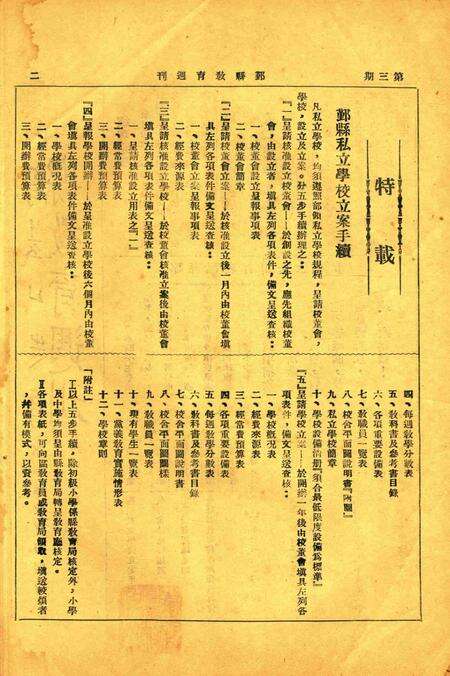 第三期
鄞縣教育週刊
二
特載
鄞縣私立學校立案手續
凡私立學校，均須遵照部頒私立學校規程，呈請校董會，
學校，設立及立案。分五步手續辦理之：
『一』呈請核准設立校董會——於創設之先，應先組織校董
會，由設立者，填具左列各項表件，備文呈送查核：
一、校董會設立呈報事項表
二、校董會簡章
『二』呈請校董會立案——於核准設立後一月內由校董會填
具左列各項表件備文呈送查核：
一、校董會立案呈報事項表
二、經費來源表
『三』呈請核准設立學校——於校董會核准立案後由校董會
填具左列各項表件備文呈送查核：
一、呈請核准設立用表之『一』
二、經常費預算表
三、開辦費預算表
『四』呈報學校開辦——於呈准設立學校後六個月內由校董
會填具左列各項表件備文呈送查核：
一、學校概况表
二、經常費預算表
三、開辦費預算表
四、每週教學分數表
五、教科書及參考書目錄
六、各項重要設備表
七、教職員一覽表
八、校舍平面圖說明書『附圖』
九、私立學校簡章
十、學校設備清册『須合最低限度設備爲標準』
『五』呈請學校立案——於開辦一年後由校董會填具左列各
項表件，備文呈送查核：
一、學校概况表
二、經費來源表
三、經常費預算表
四、各項重要設備表
五、每週教學分數表
六、教科書及參考書目錄
七、校舍平面圖說明書
八、校舍平面圖圖樣
九、教職員一覽表
十、現有學生一覽表
十一、黨義教育實施情形表
十二、學校章則
『附註』
Ⅰ以上五步手續。除初級小學係縣教育局核定外，小學
及中學均須呈由縣教育局轉呈教育廳核定。
Ⅱ各項表紙，可向區教育員或教育局領取，填送較須者
，幷備有模式，以資參考。